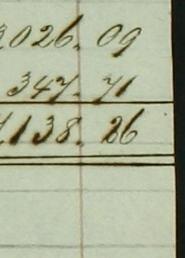 ,026. 09
347. 71
1138. 26